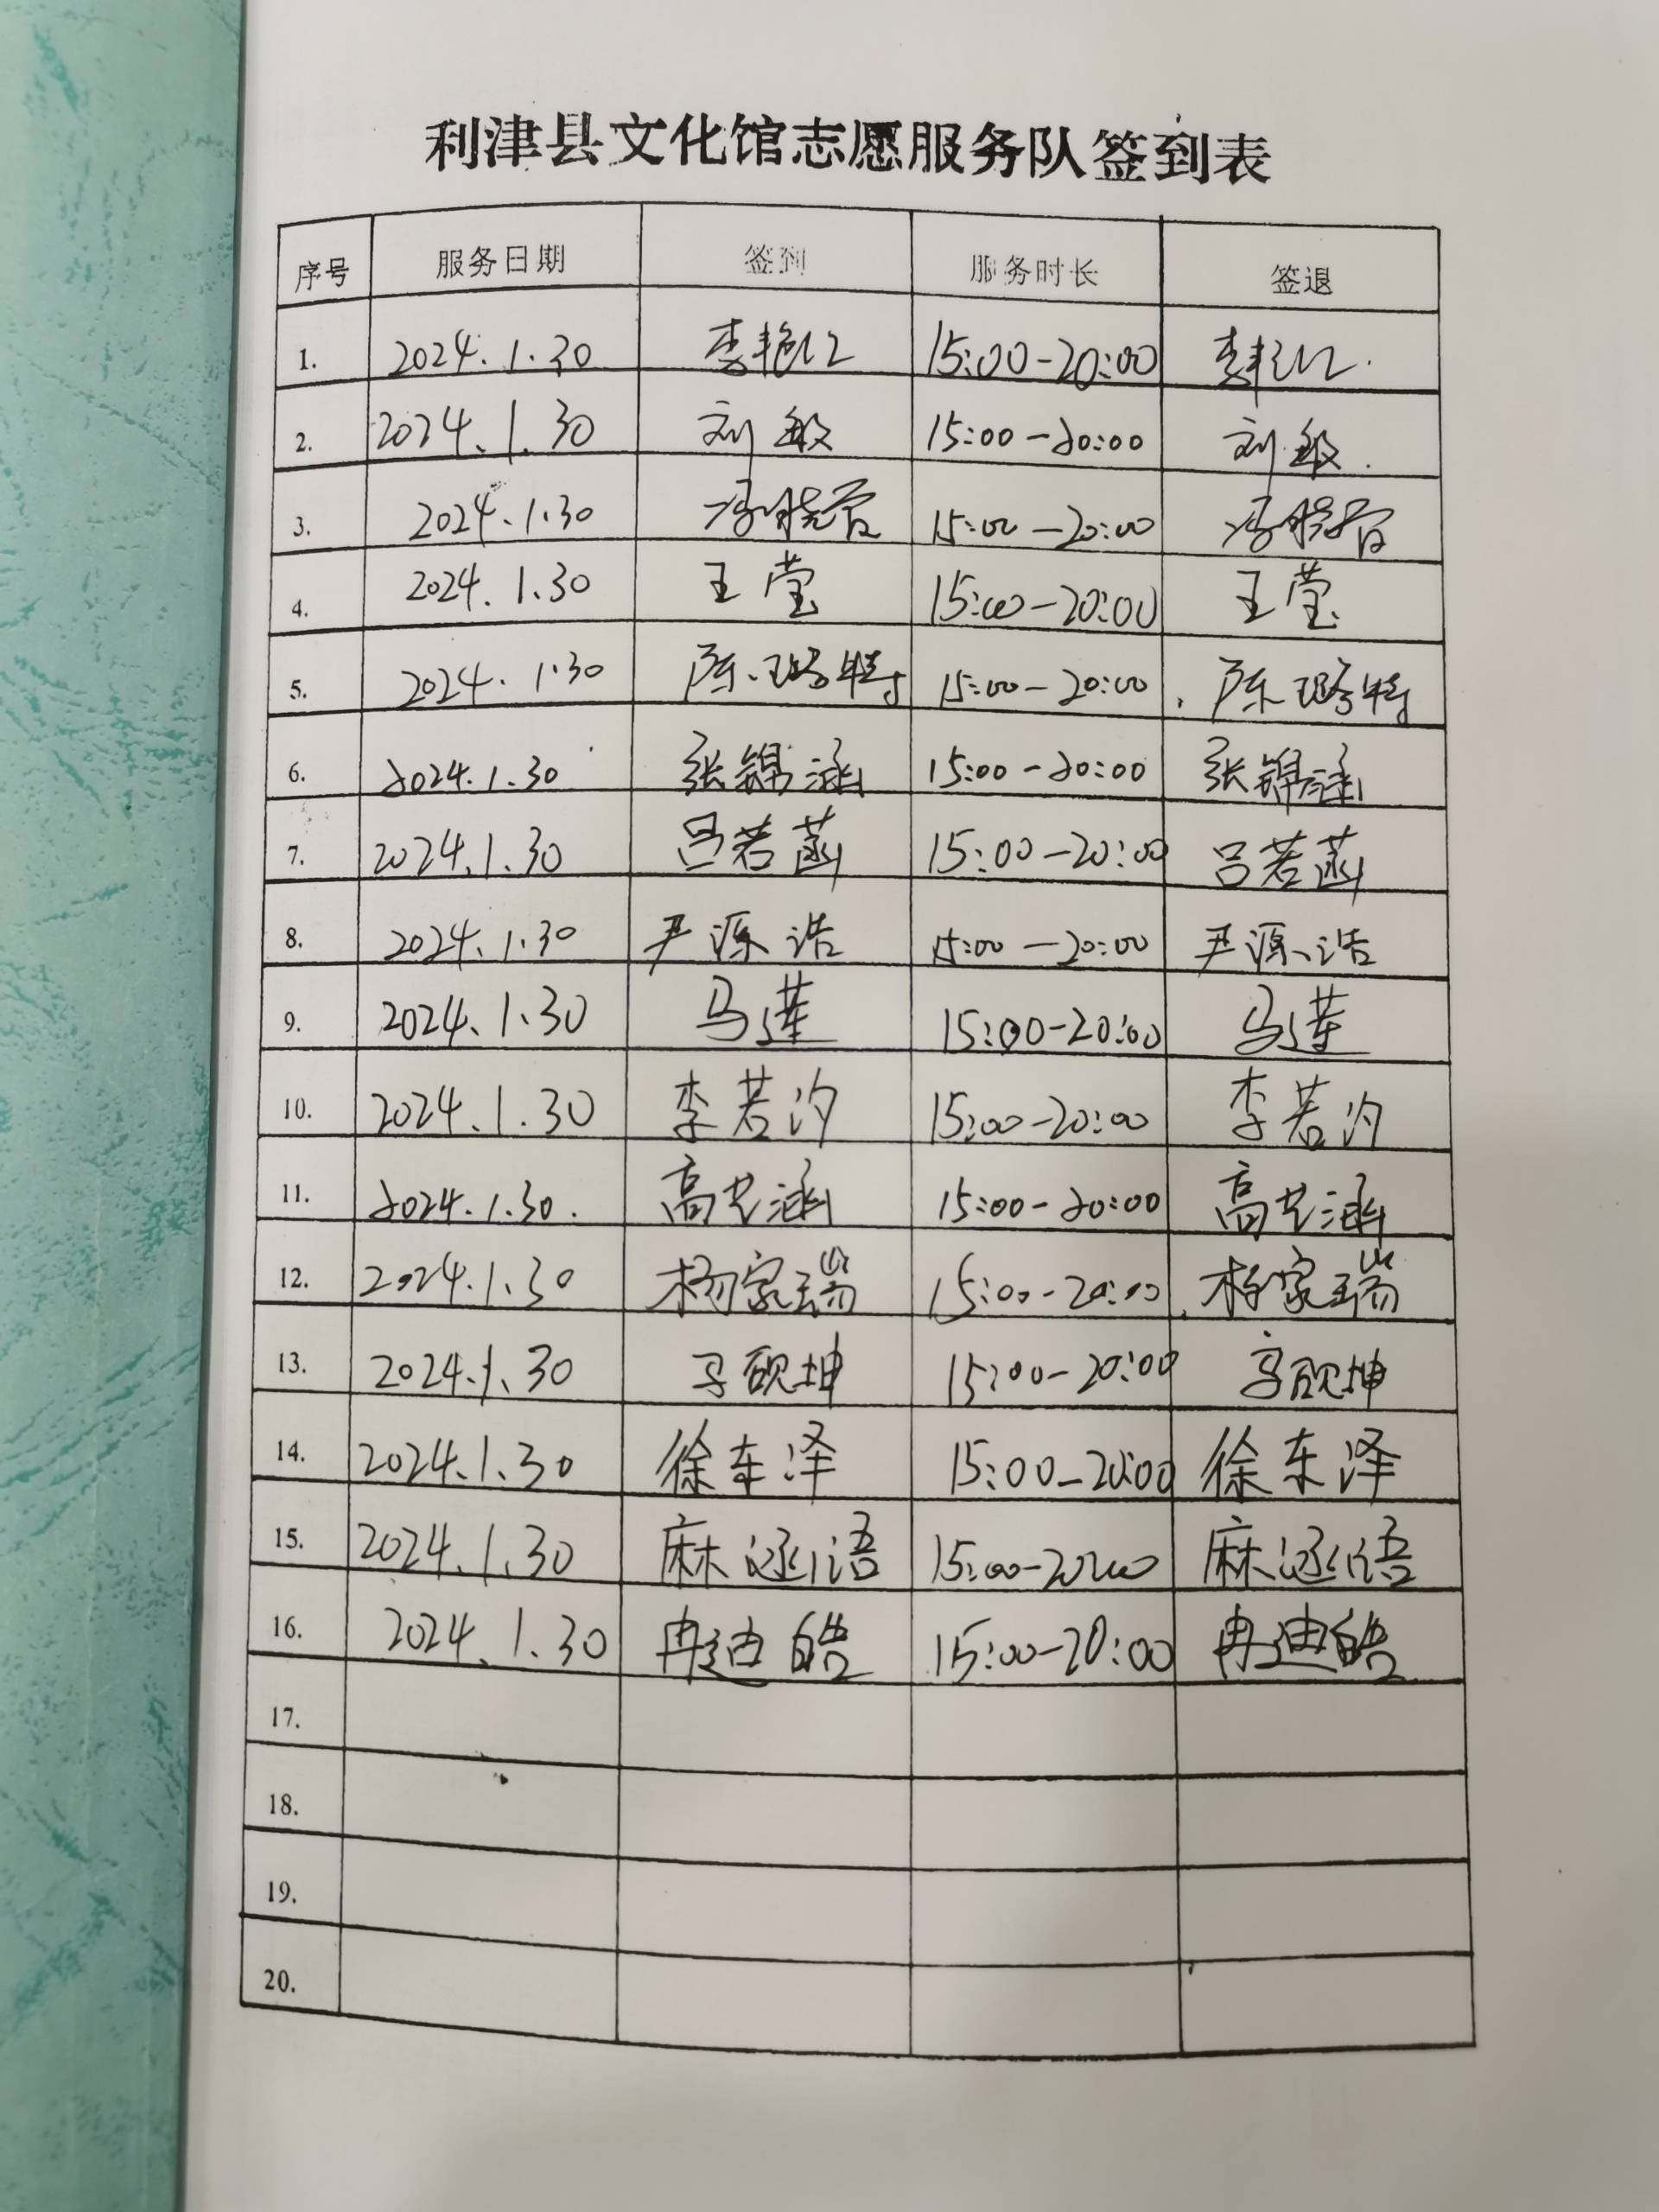 利津县文化馆志愿服务队签到表
序号 服务日期 签到 服务时长 签退
1. 2024.1.30 李艳红 15:00-20:00 李艳红
2. 2024.1.30 刘敏 15:00-20:00 刘敏
3. 2024.1.30 15:00-20:00
4. 2024.1.30 王莹 15:00-20:00 王莹
5. 2024.1.30 陈璐特 15:00-20:00 陈璐特
6. 2024.1.30 张锦涵 15:00-20:00 张锦涵
7. 2024.1.30 吕若菡 15:00-20:00 吕若菡
8. 2024.1.30 尹源浩 15:00-20:00 尹源浩
9. 2024.1.30 马莲 15:00-20:00 马莲
10. 2024.1.30 李若汐 15:00-20:00 李若汐
11. 2024.1.30. 高艺涵 15:00-20:00 高艺涵
12. 2024.1.30 杨家瑞 15:00-20:00 杨家瑞
13. 2024.1.30 马砚坤 15:00-20:00 马砚坤
14. 2024.1.30 徐东泽 15:00-20:00 徐东泽
15. 2024.1.30 麻涵语 15:00-20:00 麻涵语
16. 2024.1.30 冉迪皓 15:00-20:00 冉迪皓
17.
18.
19.
20.